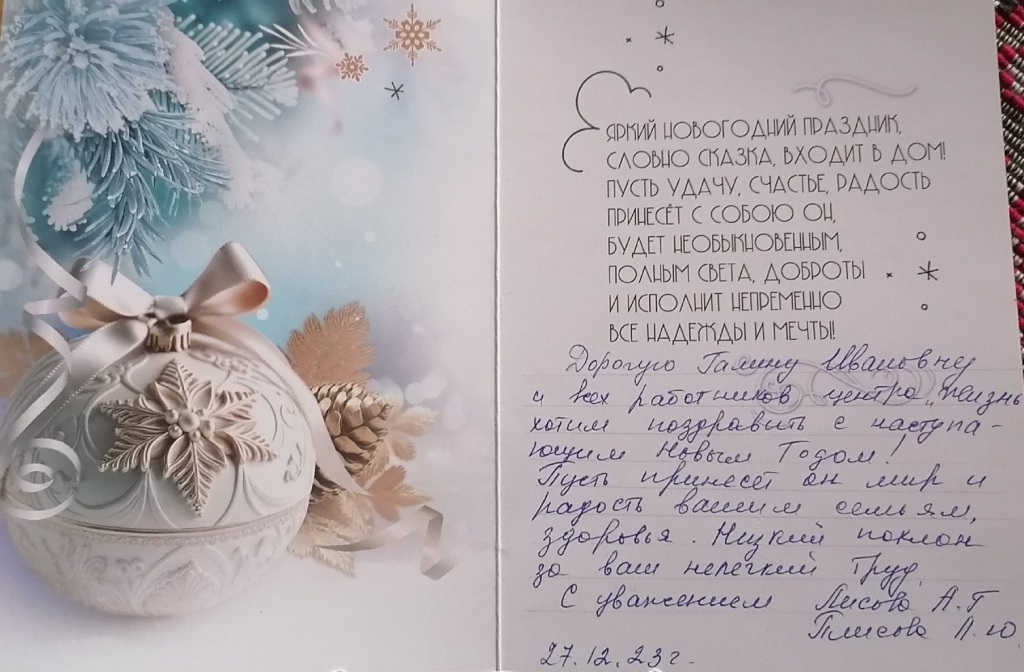 ЯРКИЙ НОВОГОДНИЙ ПРАЗДНИК,
СЛОВНО СКАЗКА, ВХОДИТ В ДОМ!
ПУСТЬ УДАЧУ, СЧАСТЬЕ, РАДОСТЬ
ПРИНЕСЁТ С СОБОЮ ОН,
БУДЕТ НЕОБЫКНОВЕННЫМ,
ПОЛНЫМ СВЕТА, ДОБРОТЫ
И ИСПОЛНИТ НЕПРЕМЕННО
ВСЕ НАДЕЖДЫ И МЕЧТЫ!
Дорогую Галину Ивановну
и всех работников центра „Жизнь
хотим поздравить с наступа-
ющим Новым Годом!
Пусть принесёт он мир и
радость вашим семьям,
здоровья. Низкий поклон
за ваш нелегкий труд.
С уважением А.Г
Плисова Л.Ю.
27.12.23г.